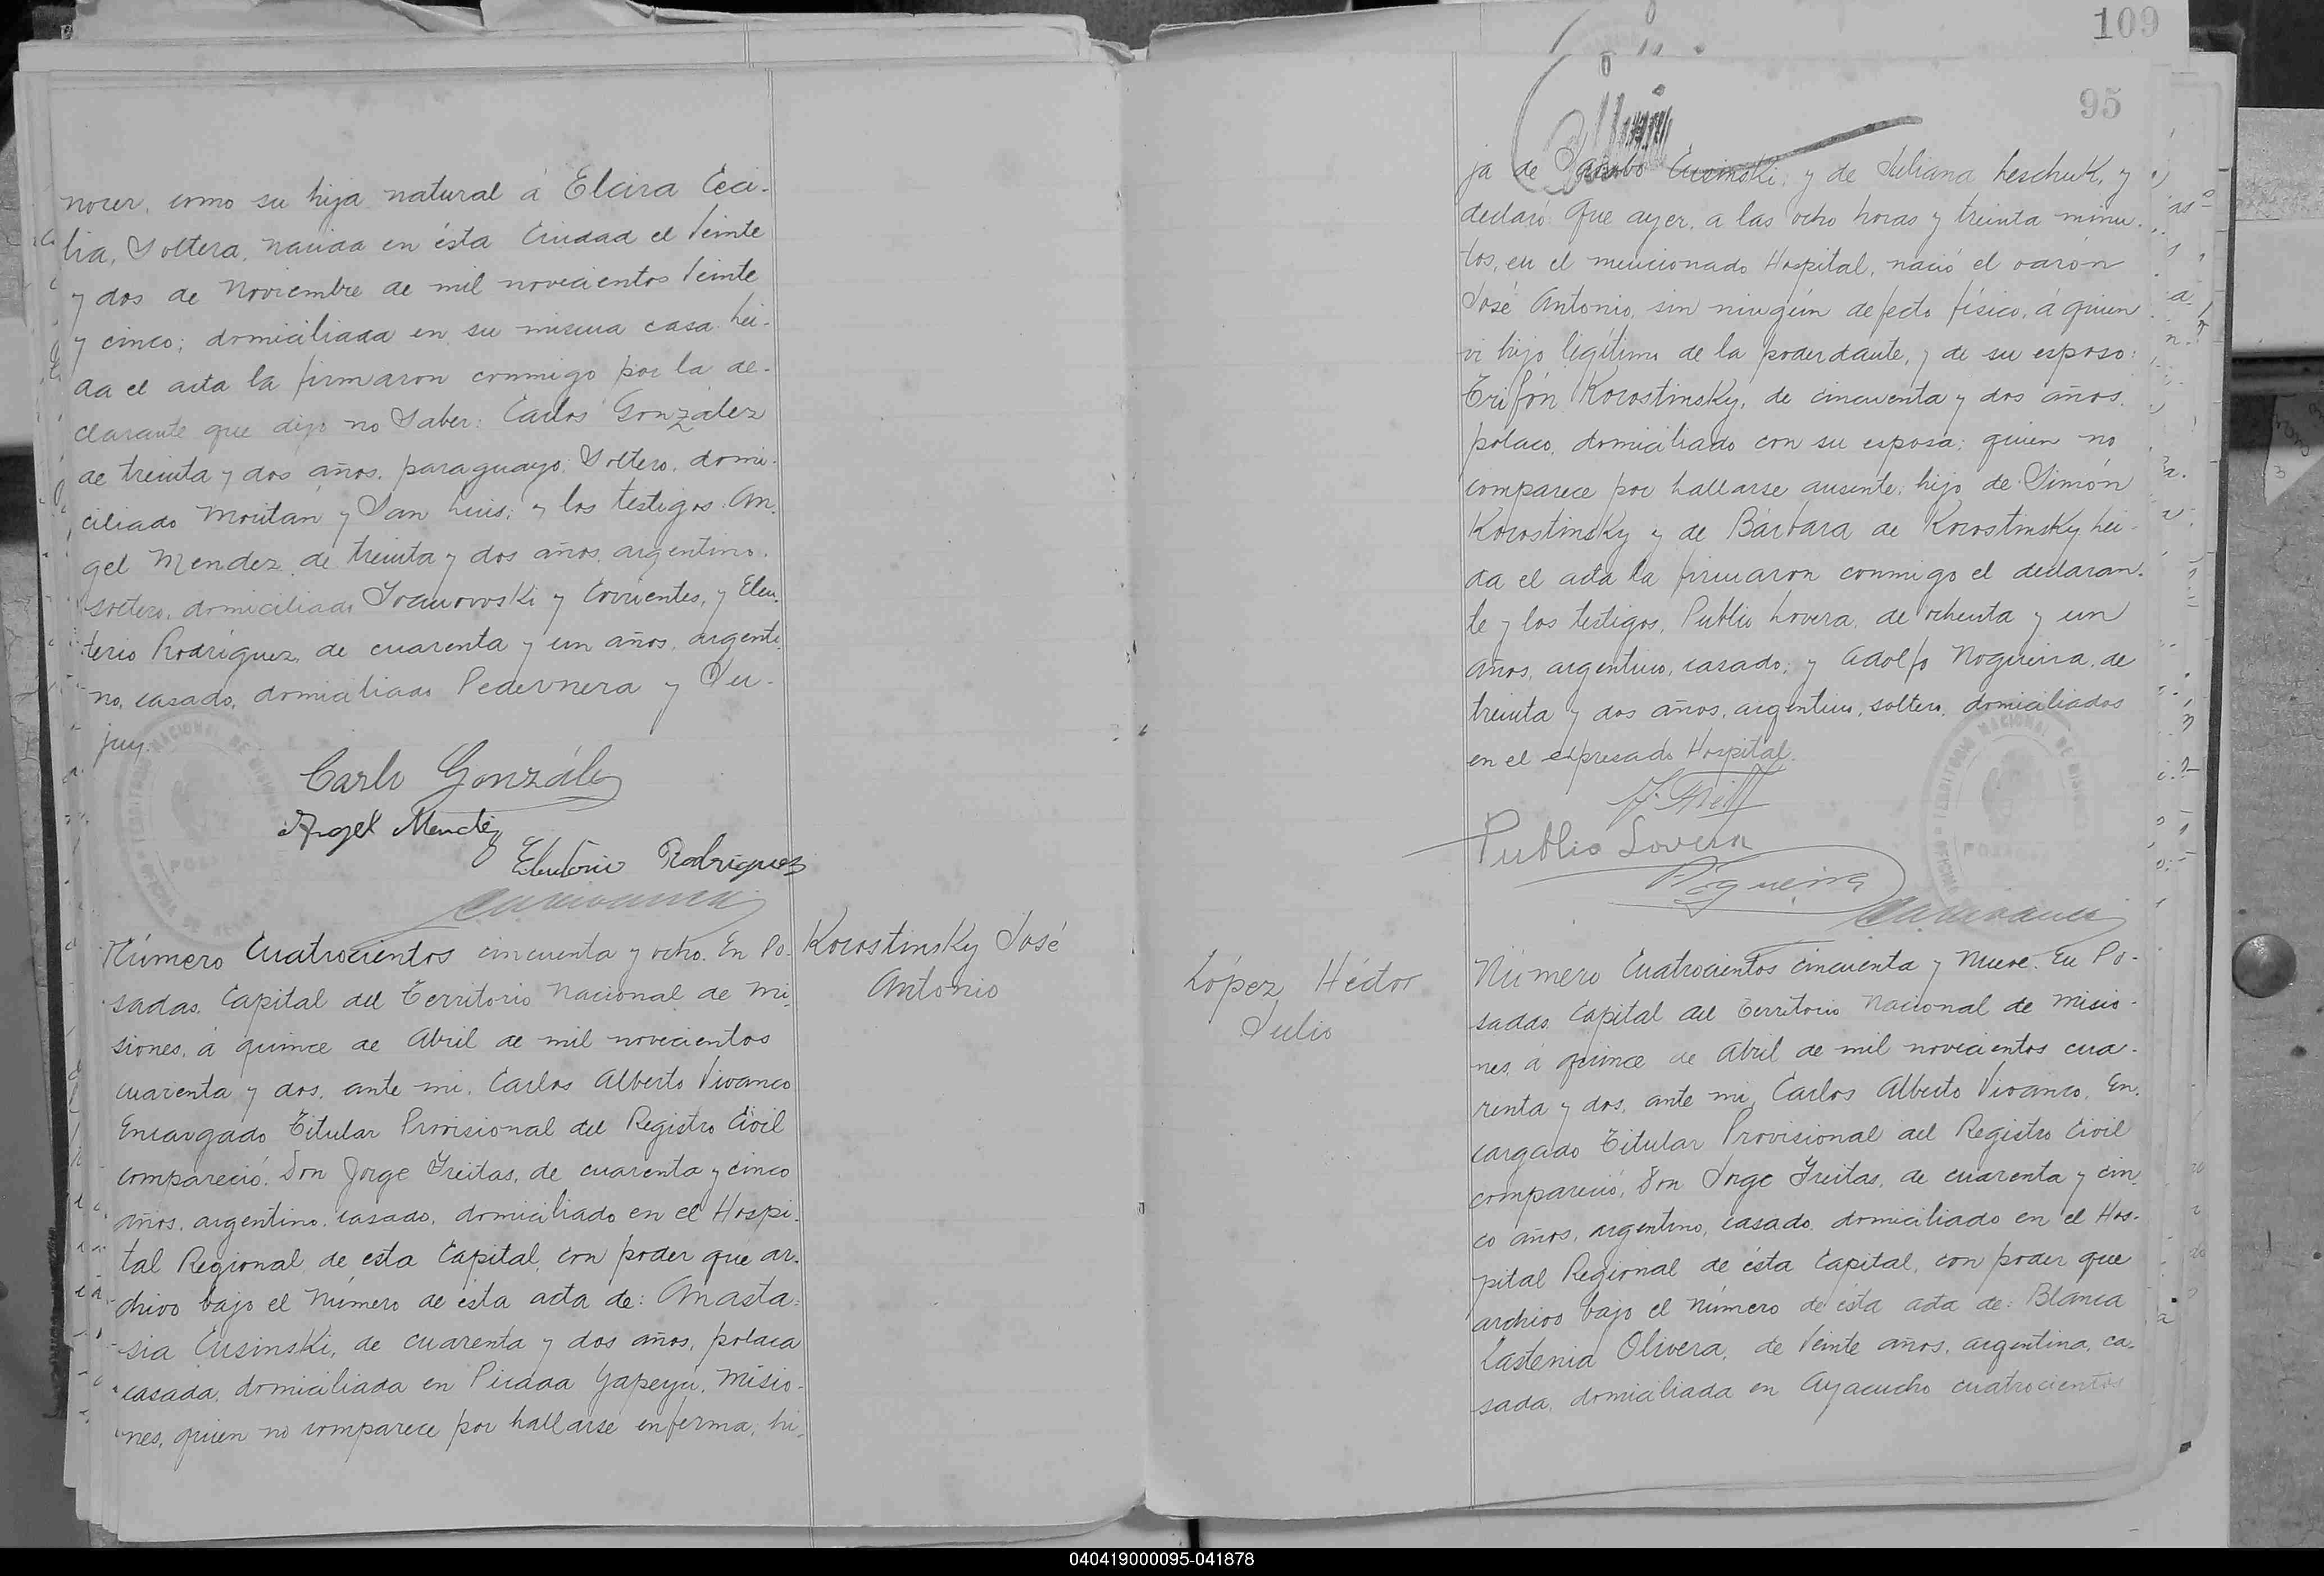 nocer, como su hija natural á Elcira Ceci-
lia, Soltera, nacida en ésta Ciudad el Veinte
y dos de Noviembre de mil novecientos Veinte
y cinco; domiciliada en su misma casa. Leí-
da el acta la firmaron conmigo por la de-
clarante que dijo no Saber: Carlos González
de treinta y dos años, paraguayo, Soltero, domi-
ciliado Moritan y San Luis; y los testigos: An-
gel Mendez, de treinta y dos años, argentino,
soltero, domiciliado y Corrientes, y Eleu-
terio Rodríguez, de cuarenta y un años, argenti-
no, casado, domiciliado Pedernera y Ju-
juy.
Carlo González
Angel Mendez
Eleuterio Rodriguez
Número Cuatrocientos cincuenta y ocho. En Po-
sadas, Capital del Territorio Nacional de Mi-
siones, á quince de Abril de mil novecientos
cuarenta y dos, ante mi, Carlos Alberto Vivanco
Encargado Titular Provisional del Registro Civil
compareció: Don Jorge Freitas, de cuarenta y cinco
años, argentino, casado, domiciliado en el Hospi-
tal Regional de esta Capital, con poder que ar-
chivo bajo el Número de esta acta de: Anasta-
sia Cusinski, de cuarenta y dos años, polaca
casada, domiciliada en Picada Yapeyú, Misio-
nes, quien no comparece por hallarse enferma; hi-
Korostinsky José
Antonio
109
95
ja de Jacobo Cusinski, y de Juliana Leschuk, y
declaró: Que ayer, a las ocho horas y treinta minu-
tos, en el mencionado Hospital, nació el varón
José Antonio, sin ningún defecto físico, á quien
vi hijo legítimo de la poderdante, y de su esposo:
Trifón Korostinsky, de cincuenta y dos años
polaco, domiciliado con su esposa; quien no
comparece por hallarse ausente; hijo de Simón
Korostinsky y de Bárbara de Korostinsky. Leí-
da el acta la firmaron conmigo el declaran-
te y los testigos, Publio Lovera, de ochenta y un
años, argentino, casado; y Adolfo Nogueira, de
treinta y dos años, argentino, soltero, domiciliados
en el expresado Hospital.
Publio Lovera
Nogueira
López Héctor
Julio
Número Cuatrocientos cincuenta y Nueve. En Po-
sadas, Capital del Territorio Nacional de Misio-
nes, á quince de Abril de mil novecientos cua-
renta y dos, ante mi, Carlos Alberto Vivanco, En-
cargado Titular Provisional del Registro Civil
compareció, Don Jorge Freitas, de cuarenta y cin-
co años, argentino, casado, domiciliado en el Hos-
pital Regional de ésta Capital, con poder que
archivo bajo el Número de ésta acta de: Blanca
Lastenia Olivera, de Veinte años, argentina, ca-
sada, domiciliada en Ayacucho cuatrocientos
040419000095-041878